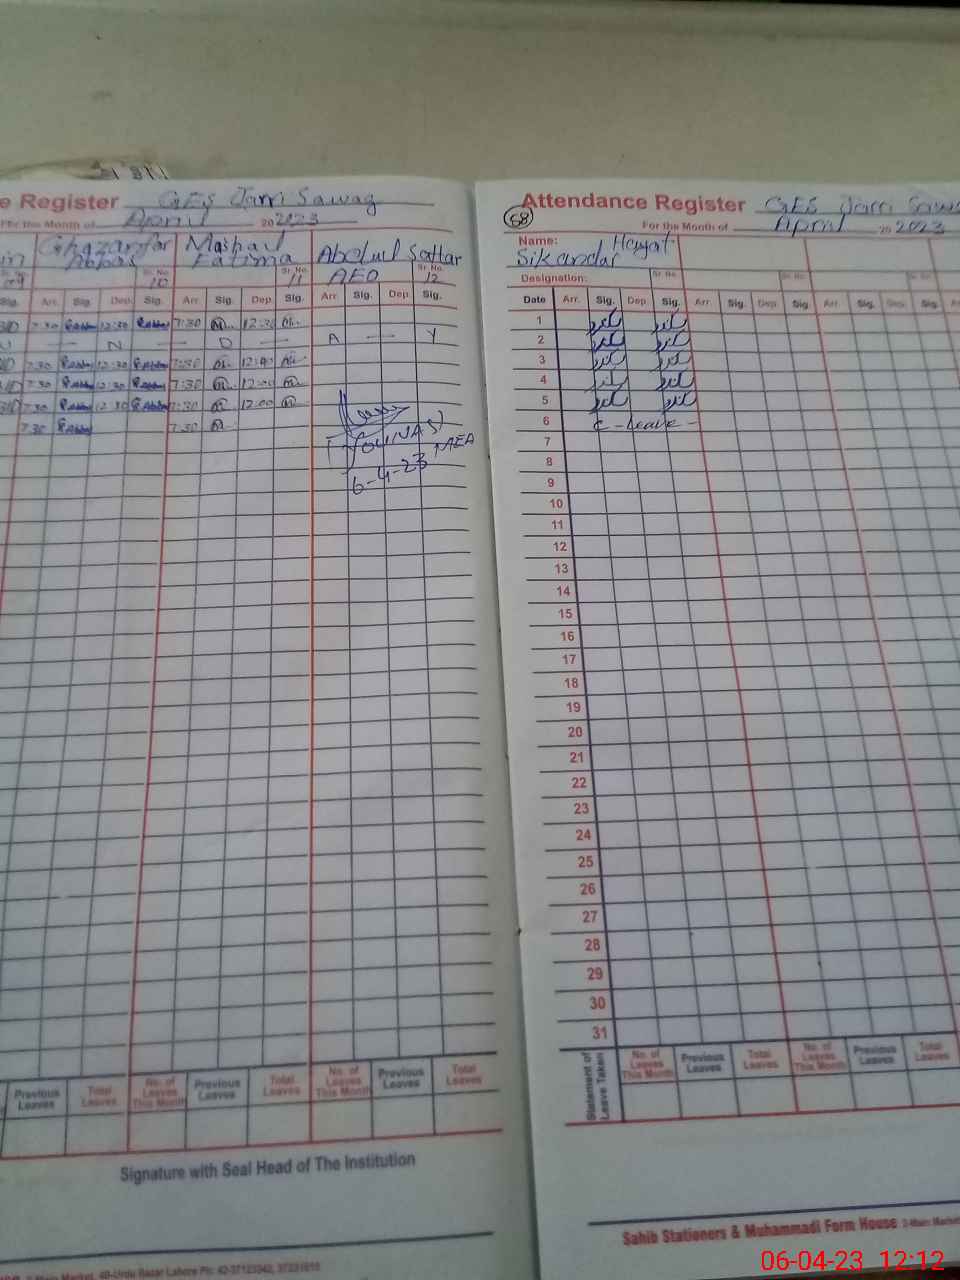 e Register GES Jam Sawag
For the Month of April 2023
Ghazanfar Abbas
Sr. No. 10
Mashail Fatima
Sr. No. 11
Abdul Sattar
AEO
Sr. No. 12
Sig. Arr. Sig. Dep. Sig. Arr. Sig. Dep. Sig. Arr. Sig. Dep. Sig.
7:30 12:30 7:30 12:30
N D A Y
7:30 12:30 7:30
7:30 12:30 7:30 12:00
7:30 12:30 7:30 12:00
7:30 7:30
6-4-23 MEA
Previous Leaves Total Leaves No. of Leaves This Month Previous Leaves Total Leaves No. of Leaves This Month Previous Leaves Total Leaves
Signature with Seal Head of The Institution
Attendance Register GES Jam Sawa
68
For the Month of April 2023
Name: Sikandar Hayat
Designation:
Sr. No. Sr. No. Sr. No.
Date Arr. Sig. Dep. Sig. Arr. Sig. Dep. Sig. Arr. Sig. Dep. Sig.
1
2
3
4
5
6 C - Leave -
7
8
9
10
11
12
13
14
15
16
17
18
19
20
21
22
23
24
25
26
27
28
29
30
31
Statement of Leave Taken No. of Leaves This Month Previous Leaves Total Leaves No. of Leaves This Month Previous Leaves Total Leaves
Sahib Stationers & Muhammadi Form House
06-04-23 12:12